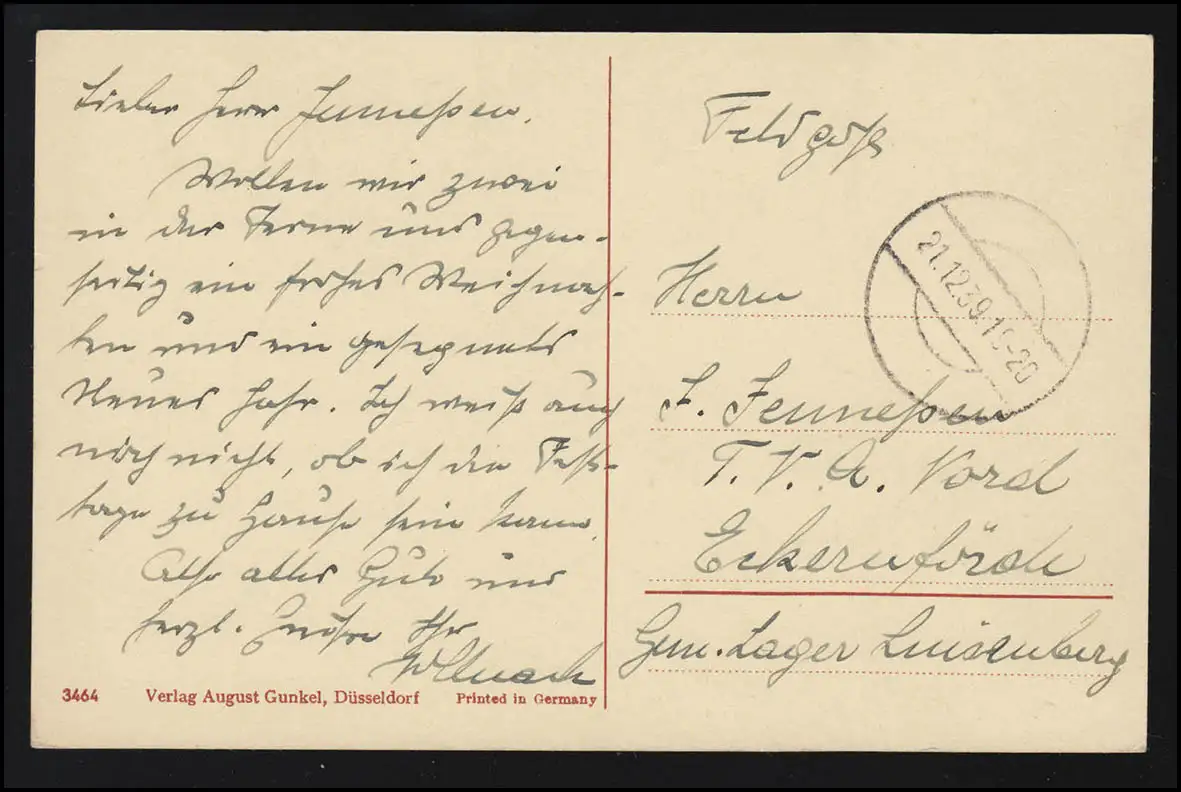 Lieber Herr Jenneßen.
Wollen wir zwei
in der Ferne uns gegen-
seitig ein frohes Weihnach-
ten und ein gesegnetes
Neues Jahr. Ich weiß auch
noch nicht, ob ich die Fest-
tage zu Hause sein kann.
Also alles Gute und
herzl. Grüße Ihr
3464 Verlag August Gunkel, Düsseldorf Printed in Germany
Feldpost
21.12.39.
Herrn
J. Jenneßen
T. V. A. Nord
Eckernförde
Gem. Lager Luisenberg